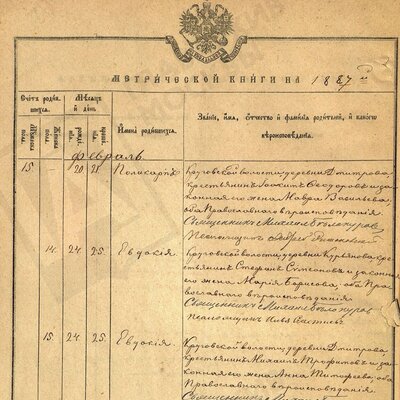 МЕТРИЧЕСКОЙ КНИГИ НА 1887й
Счетъ родив-
шихся.
Мужеска пола.
Женска пола.
Мѣсяцъ
и день
рожденія.
крещенія.
Имена родившихся.
Званіе, имя, отчество и фамилія родителей, и какого
вѣроисповѣданія.
февраль
15 — 20 21
Поликарпъ
волости, деревни Дмитрова
крестьянинъ Ѳеодоровъ и за-
конная его жена Мавра Васильева,
оба Православнаго вѣроисповѣданія
Священникъ Михаилъ
14. 24. 25.
Евдокія
волости, деревни кре-
стьянинъ Стефанъ Симеоновъ и закон-
ная его жена Марія Борисова, оба Пра-
вославнаго вѣроисповѣданія
Священникъ Михаилъ
псаломщикъ Илья
15. 24. 25.
Евдокія
волости, деревни Дмитрова
крестьянинъ Михаилъ Трофимовъ и за-
конная его жена Анна Тимофеева, оба
Православнаго вѣроисповѣданія.
Священникъ Михаилъ